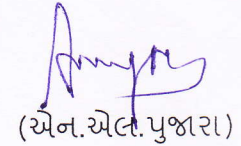 (એન.એલ.પુજારા)